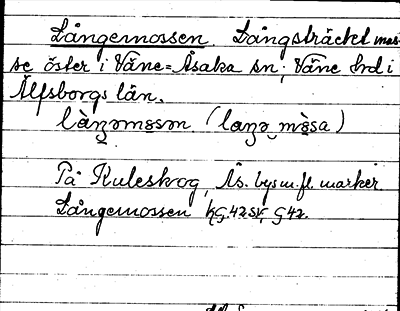 Långemossen. Långsträckt mos-
se öster i Väne-Åsaka sn, Väne hrd i
Älfsborgs län.
På Kuleskog, Ås. bys m. fl. marker
Långemossen kg. 42 SV, G 42.